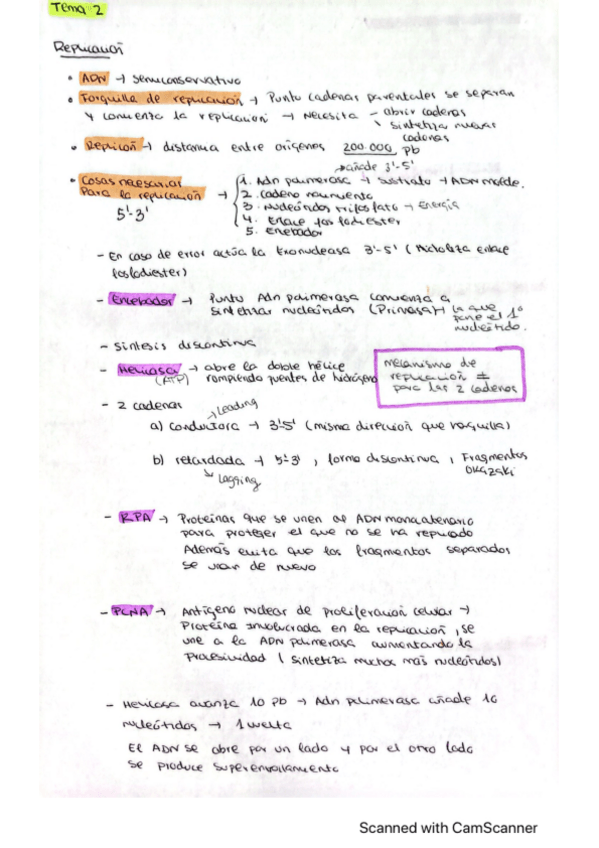 Tema 2
Replicación
• ADN → semiconservativo
• Forquilla de replicación → Punto cadenas parentales se separan
y comienza la replicación → Necesita - abrir cadenas
sintetiza nuevas
cadenas
• Replicón → distancia entre orígenes 200.000 pb
→ añade 3'-5'
• Cosas necesarias
para la replicación →
5'-3'
1. Adn polimerasa → sustrato → ADN molde.
2. Cadena
3. Nucleótidos trifosfato → Energía
4. Enlace fosfodiester
5. Encebador
- En caso de error actúa la Exonucleasa 3'-5' (Hidroliza enlace
fosfodiester)
- Encebador → Punto Adn polimerasa comienza a
sintetizar nucleótidos (Primasa) → la que
pone el 1º
nucleótido.
- Síntesis discontinua
- Helicasa → abre la doble hélice
(ATP) rompiendo puentes de hidrógeno
Mecanismo de
replicación ≠
para las 2 cadenas
- 2 cadenas
→ Leading
a) conductora → 3'-5' (misma dirección que horquilla)
b) retardada → 5'-3', forma discontinua, Fragmentos
Okazaki
↘ Lagging
- RPA → Proteínas que se unen al ADN monocatenario
para proteger el que no se ha replicado
Además evita que los fragmentos separados
se unan de nuevo
- PCNA → Antígeno nuclear de proliferación celular →
Proteína involucrada en la replicación, se
une a la ADN polimerasa aumentando la
Procesividad (sintetiza muchos más nucleótidos)
- Helicasa avanza 10 pb → Adn polimerasa añade 10
nucleótidos → 1 vuelta
El ADN se abre por un lado y por el otro lado
se produce superenrollamiento
Scanned with CamScanner